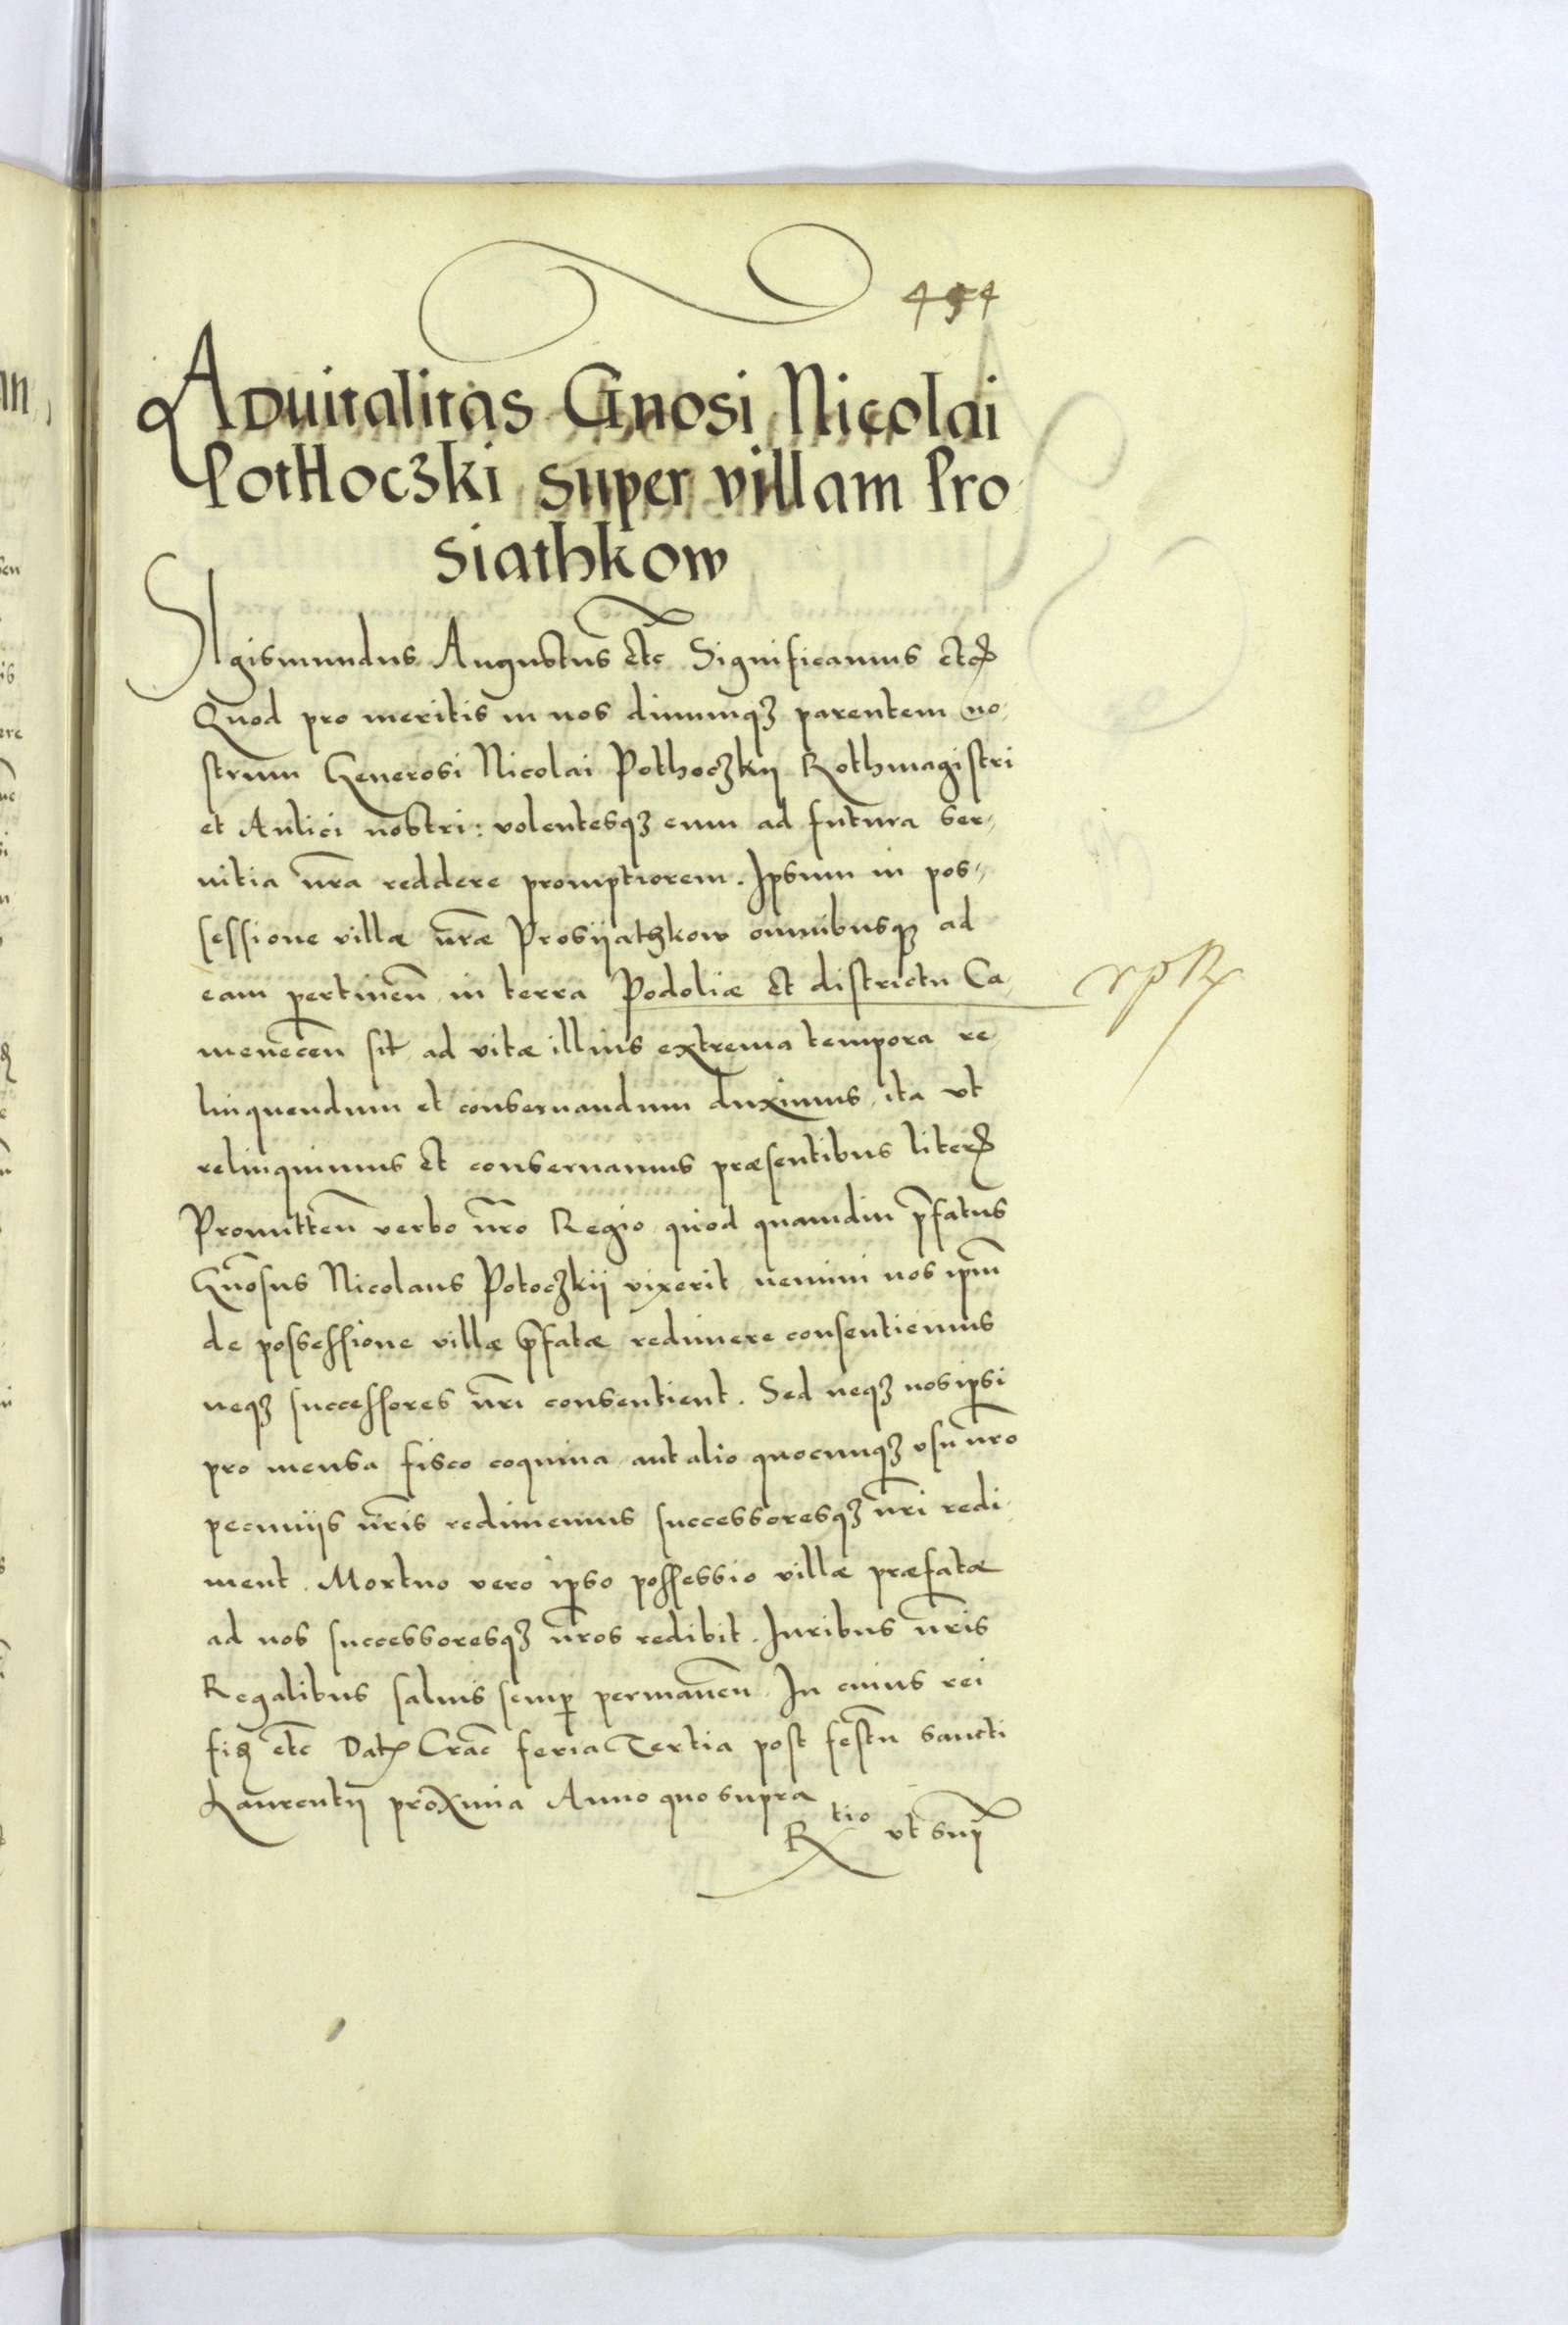 454
Aduitalitas Gnosi Nicolai
Pothoczki super villam Pro
siathkow
SIgismundus Augustus etc Significamus etc
Quod pro meritis in nos diuumqȝ parentem no,
strum Generosi Nicolai Pothoczkij Rothmagistri
et Aulici nostri: volentesqȝ eum ad futura ser,
uitia nr̃a reddere promptiorem. Ipsum in pos,
sessione villæ nr̃æ Prosijathkow omnibusqȝ ad
eam pertineñ in terra Podoliæ et districtu Ca,
meneceñ sit, ad vitæ illius extrema tempora re
linquendum et conseruandum duximus, ita vt
relinquimus et conseruamus præsentibus liter̃
Promitteñ verbo nr̃o Regio, quod quamdiu p̃fatus
Gñosus Nicolaus Potoczkij vixerit, nemini nos ip̃m
de possessione villæ p̃fatæ redimere consentiemus
neqȝ successores nr̃i consentient. Sed neqȝ nos ipsi
pro mensa fisco coquina, aut alio quocunqȝ vsu nr̃o
pecunijs nr̃is redimemus successoresqȝ nr̃i redi,
ment. Mortuo vero ipso possessio villæ præfatæ
ad nos successoresqȝ nr̃os redibit. Iuribus nr̃is
Regalibus saluis semp̱ permaneñ. In cuius rei
fiȝ etc Dat Crac̃ feria Tertia post festũ sancti
Laurentij proxima Anno quo supra
Rtio vt sup̃